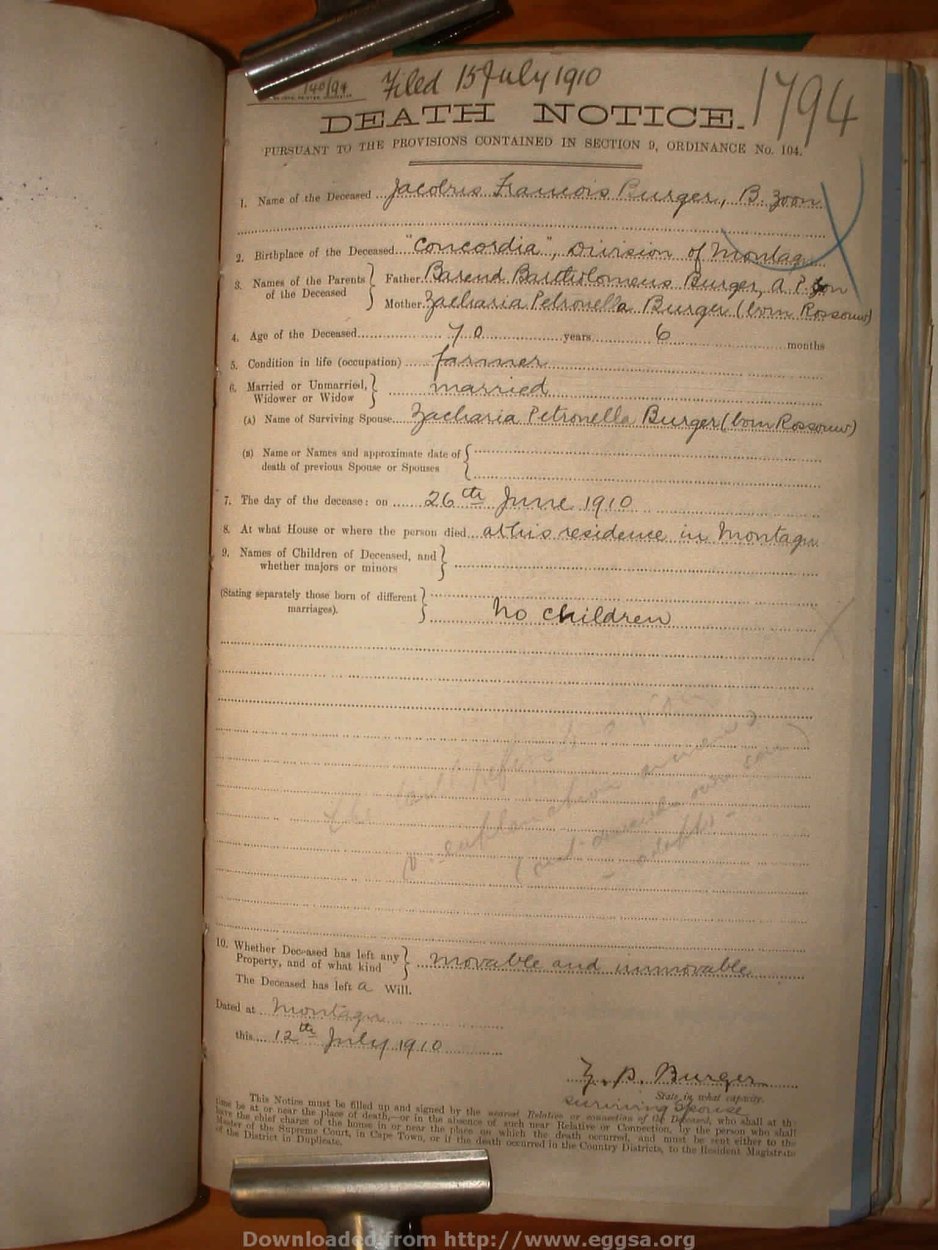 140/94 Filed 15 July 1910
1794
DEATH NOTICE.
PURSUANT TO THE PROVISIONS CONTAINED IN SECTION 9, ORDINANCE No. 104.
1. Name of the Deceased Jacobus Francois Burger, B. zoon
2. Birthplace of the Deceased "Concordia", Division of Montagu
3. Names of the Parents of the Deceased } Father Barend Bartholomeus Burger, a P. zon
Mother Zacharia Petronella Burger (born Rossouw)
4. Age of the Deceased 70 years 6 months
5. Condition in life (occupation) farmer
6. Married or Unmarried, Widower or Widow } married
(A) Name of Surviving Spouse Zacharia Petronella Burger (born Rossouw)
(B) Name or Names and approximate date of death of previous Spouse or Spouses {
7. The day of the decease: on 26th June 1910
8. At what House or where the person died at his residence in Montagu
9. Names of Children of Deceased, and whether majors or minors }
(Stating separately those born of different marriages). } no children
explanation
10. Whether Deceased has left any Property, and of what kind } movable and immovable
The Deceased has left a Will.
Dated at Montagu
this 12th July 1910
Z. P. Burger
State in what capacity.
surviving Spouse
This Notice must be filled up and signed by the nearest Relative or connection of the Deceased, who shall at the
time be at or near the place of death,—or in the absence of such near Relative or Connection, by the person who shall
have the chief charge of the house in or near the place on which the death occurred, and must be sent either to the
Master of the Supreme Court, in Cape Town, or if the death occurred in the Country Districts, to the Resident Magistrate
of the District in Duplicate.
Downloaded from http://www.eggsa.org